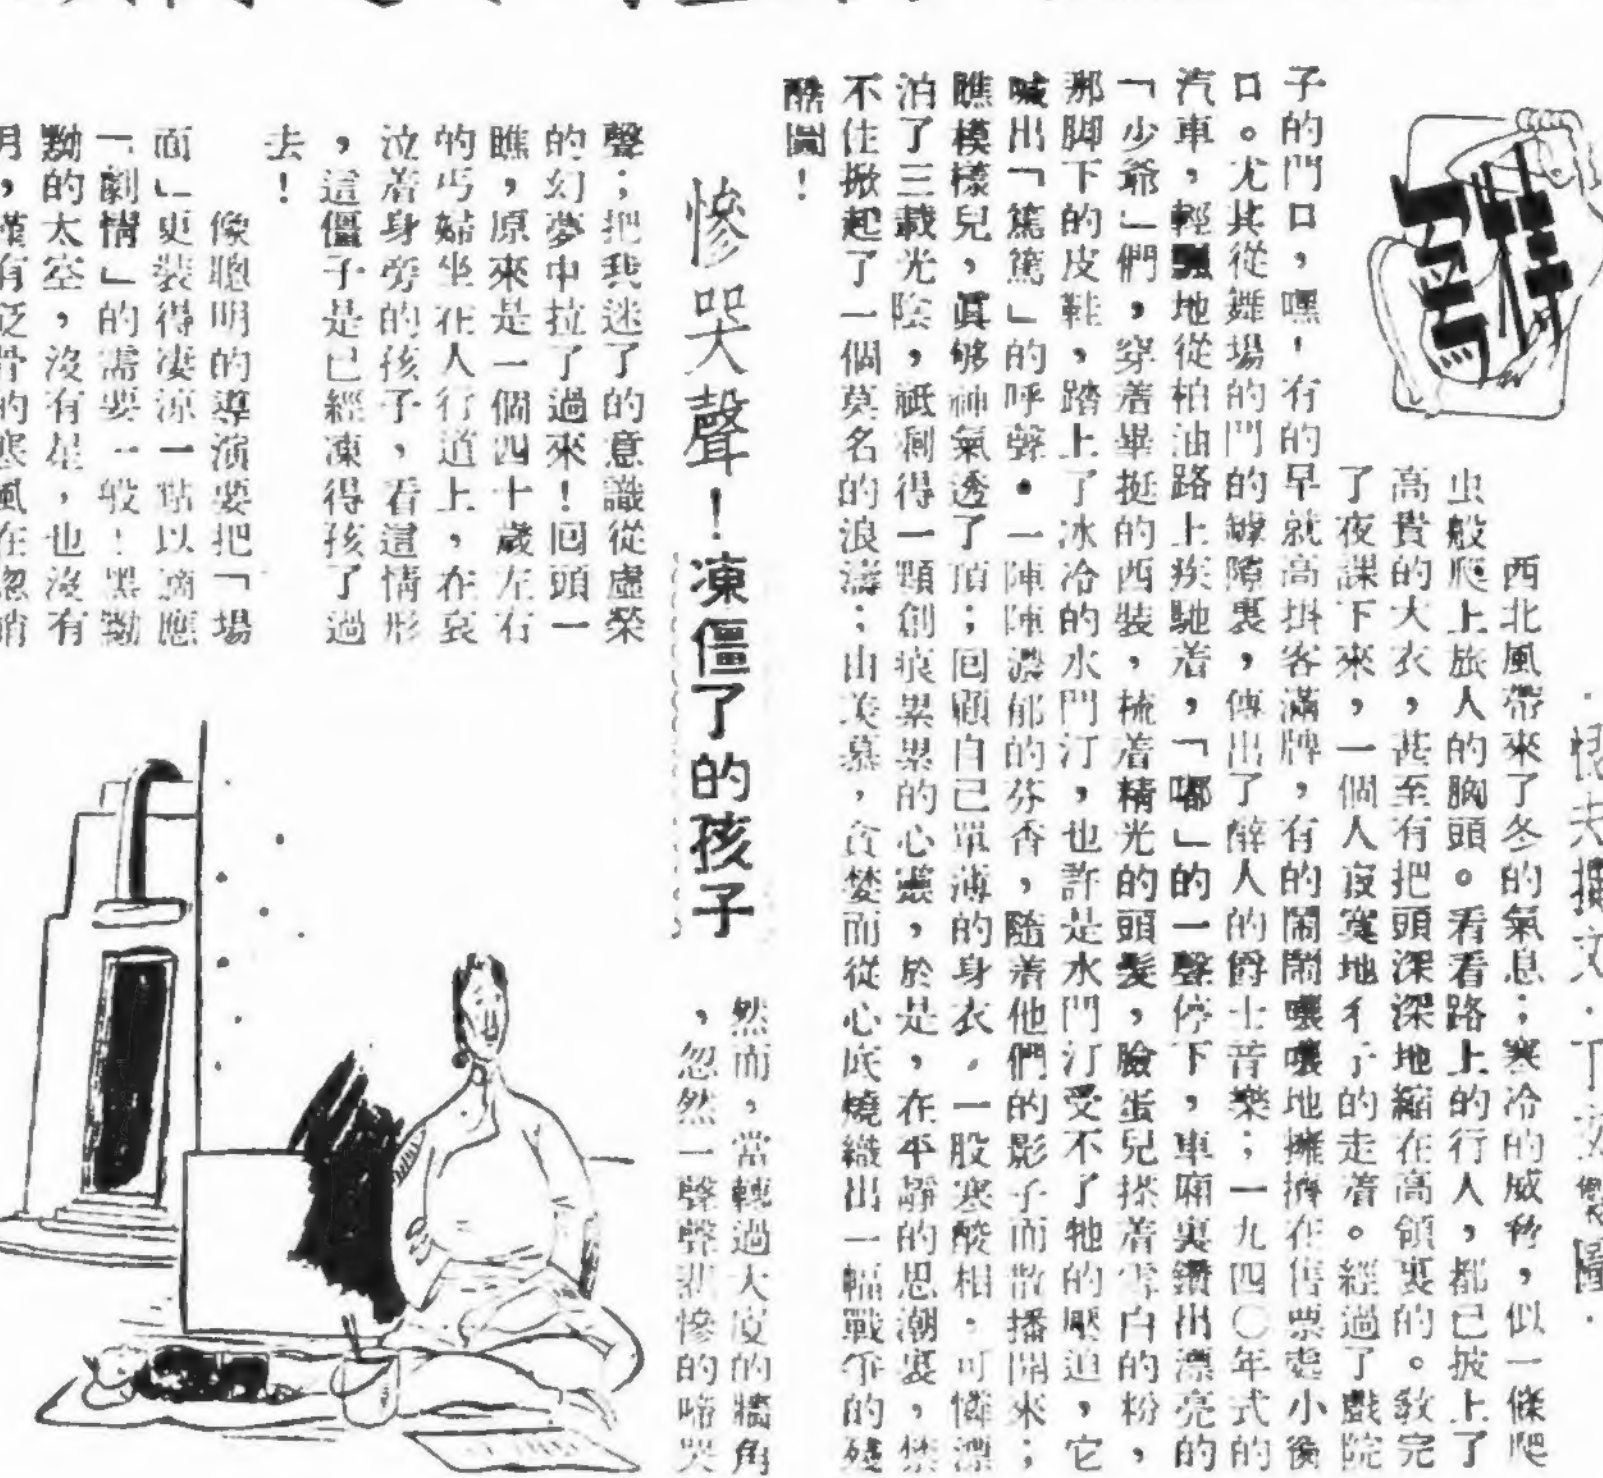 特寫
西北風帶來了冬的氣息；寒冷的威脅，似一條爬
虫般爬上旅人的胸頭。看看路上的行人，都已披上了
高貴的大衣，甚至有把頭深深地縮在高領裏的。教完
了夜課下來，一個人寂寞地彳亍的走着。經過了戲院
子的門口，嘿，有的早就高掛客滿牌，有的鬧鬧嚷嚷地擁擠在售票處小窗
口。尤其從舞場的門的罅隙裏，傳出了醉人的爵士音樂；一九四〇年式的
汽車，輕飄地從柏油路上疾馳着，「嘟」的一聲停下，車厢裏鑽出漂亮的
「少爺」們，穿着畢挺的西裝，梳着精光的頭髮，臉蛋兒搽着雪白的粉，
那脚下的皮鞋，踏上了冰冷的水門汀，也許是水門汀受不了牠的壓迫，它
喊出「篤篤」的呼聲。一陣陣濃郁的芬香，隨着他們的影子而散播開來；
瞧模樣兒，眞够神氣透了頂；回顧自己單薄的身衣，一股寒酸相，可憐漂
泊了三載光陰，祗剩得一顆創痕累累的心靈，於是，在平靜的思潮裏，禁
不住掀起了一個莫名的浪濤；由羨慕，貪婪而從心底燒織出一幅戰爭的殘
酷圖！
慘哭聲！凍僵了的孩子
然而，當轉過大廈的牆角
，忽然一聲聲悲慘的啼哭
聲；把我迷了的意識從虛榮
的幻夢中拉了過來！回頭一
瞧，原來是一個四十歲左右
的丐婦坐在人行道上，在哀
泣着身旁的孩子，看這情形
，這僵子是已經凍得孩了過
去！
像聰明的導演要把「場
面」更裝得凄涼一點以適應
「劇情」的需要一般！黑黝
黝的太空，沒有星，也沒有
月，有砭骨的寒風在